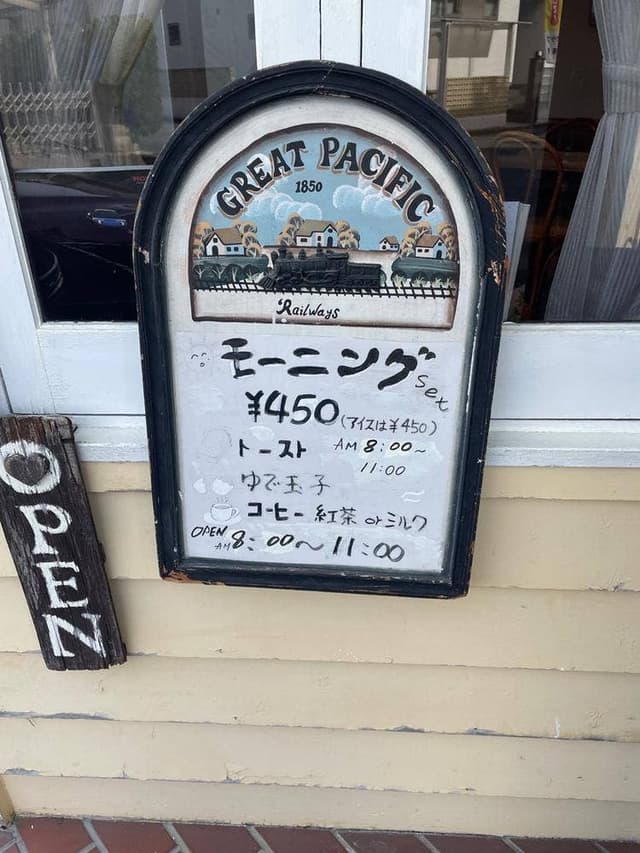 GREAT PACIFIC
1850
Railways
モーニング set
¥450 (アイスは¥450)
トースト AM 8:00~
11:00
ゆで玉子
コーヒー 紅茶 or ミルク
OPEN
AM 8:00~11:00
OPEN